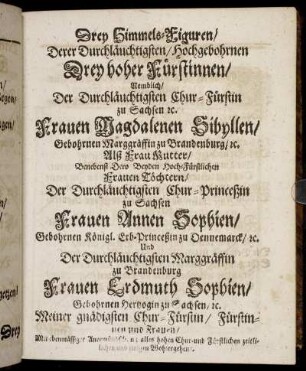 Drey Himmels-Figuren/
Derer Durchläuchtigsten/ Hochgebohrnen
Drey hoher Fürstinnen/
Nemblich/
Der Durchläuchtigsten Chur-Fürstin
zu Sachsen ꝛc.
Frauen Magdalenen Sibyllen/
Gebohrnen Marggräffin zu Brandenburg/ ꝛc.
Alß Frau Mutter/
Benebenst Dero Beyden Hoch-Fürstlichen
Frauen Töchtern/
Der Durchläuchtigsten Chur-Princeßin
zu Sachsen
Frauen Annen Sophien/
Gebohrnen Königl. Erb-Princeßin zu Dennemarck/ ꝛc.
Und
Der Durchläuchtigsten Marggräffin
zu Brandenburg
Frauen Erdmuth Sophien/
Gebohrnen Hertzogin zu Sachsen/ ꝛc.
Meiner gnädigsten Chur-Fürstin/ Fürstin-
nen und Frauen/
alles hohen Chur-und Fürstlichen
Wohlergehens
Drey